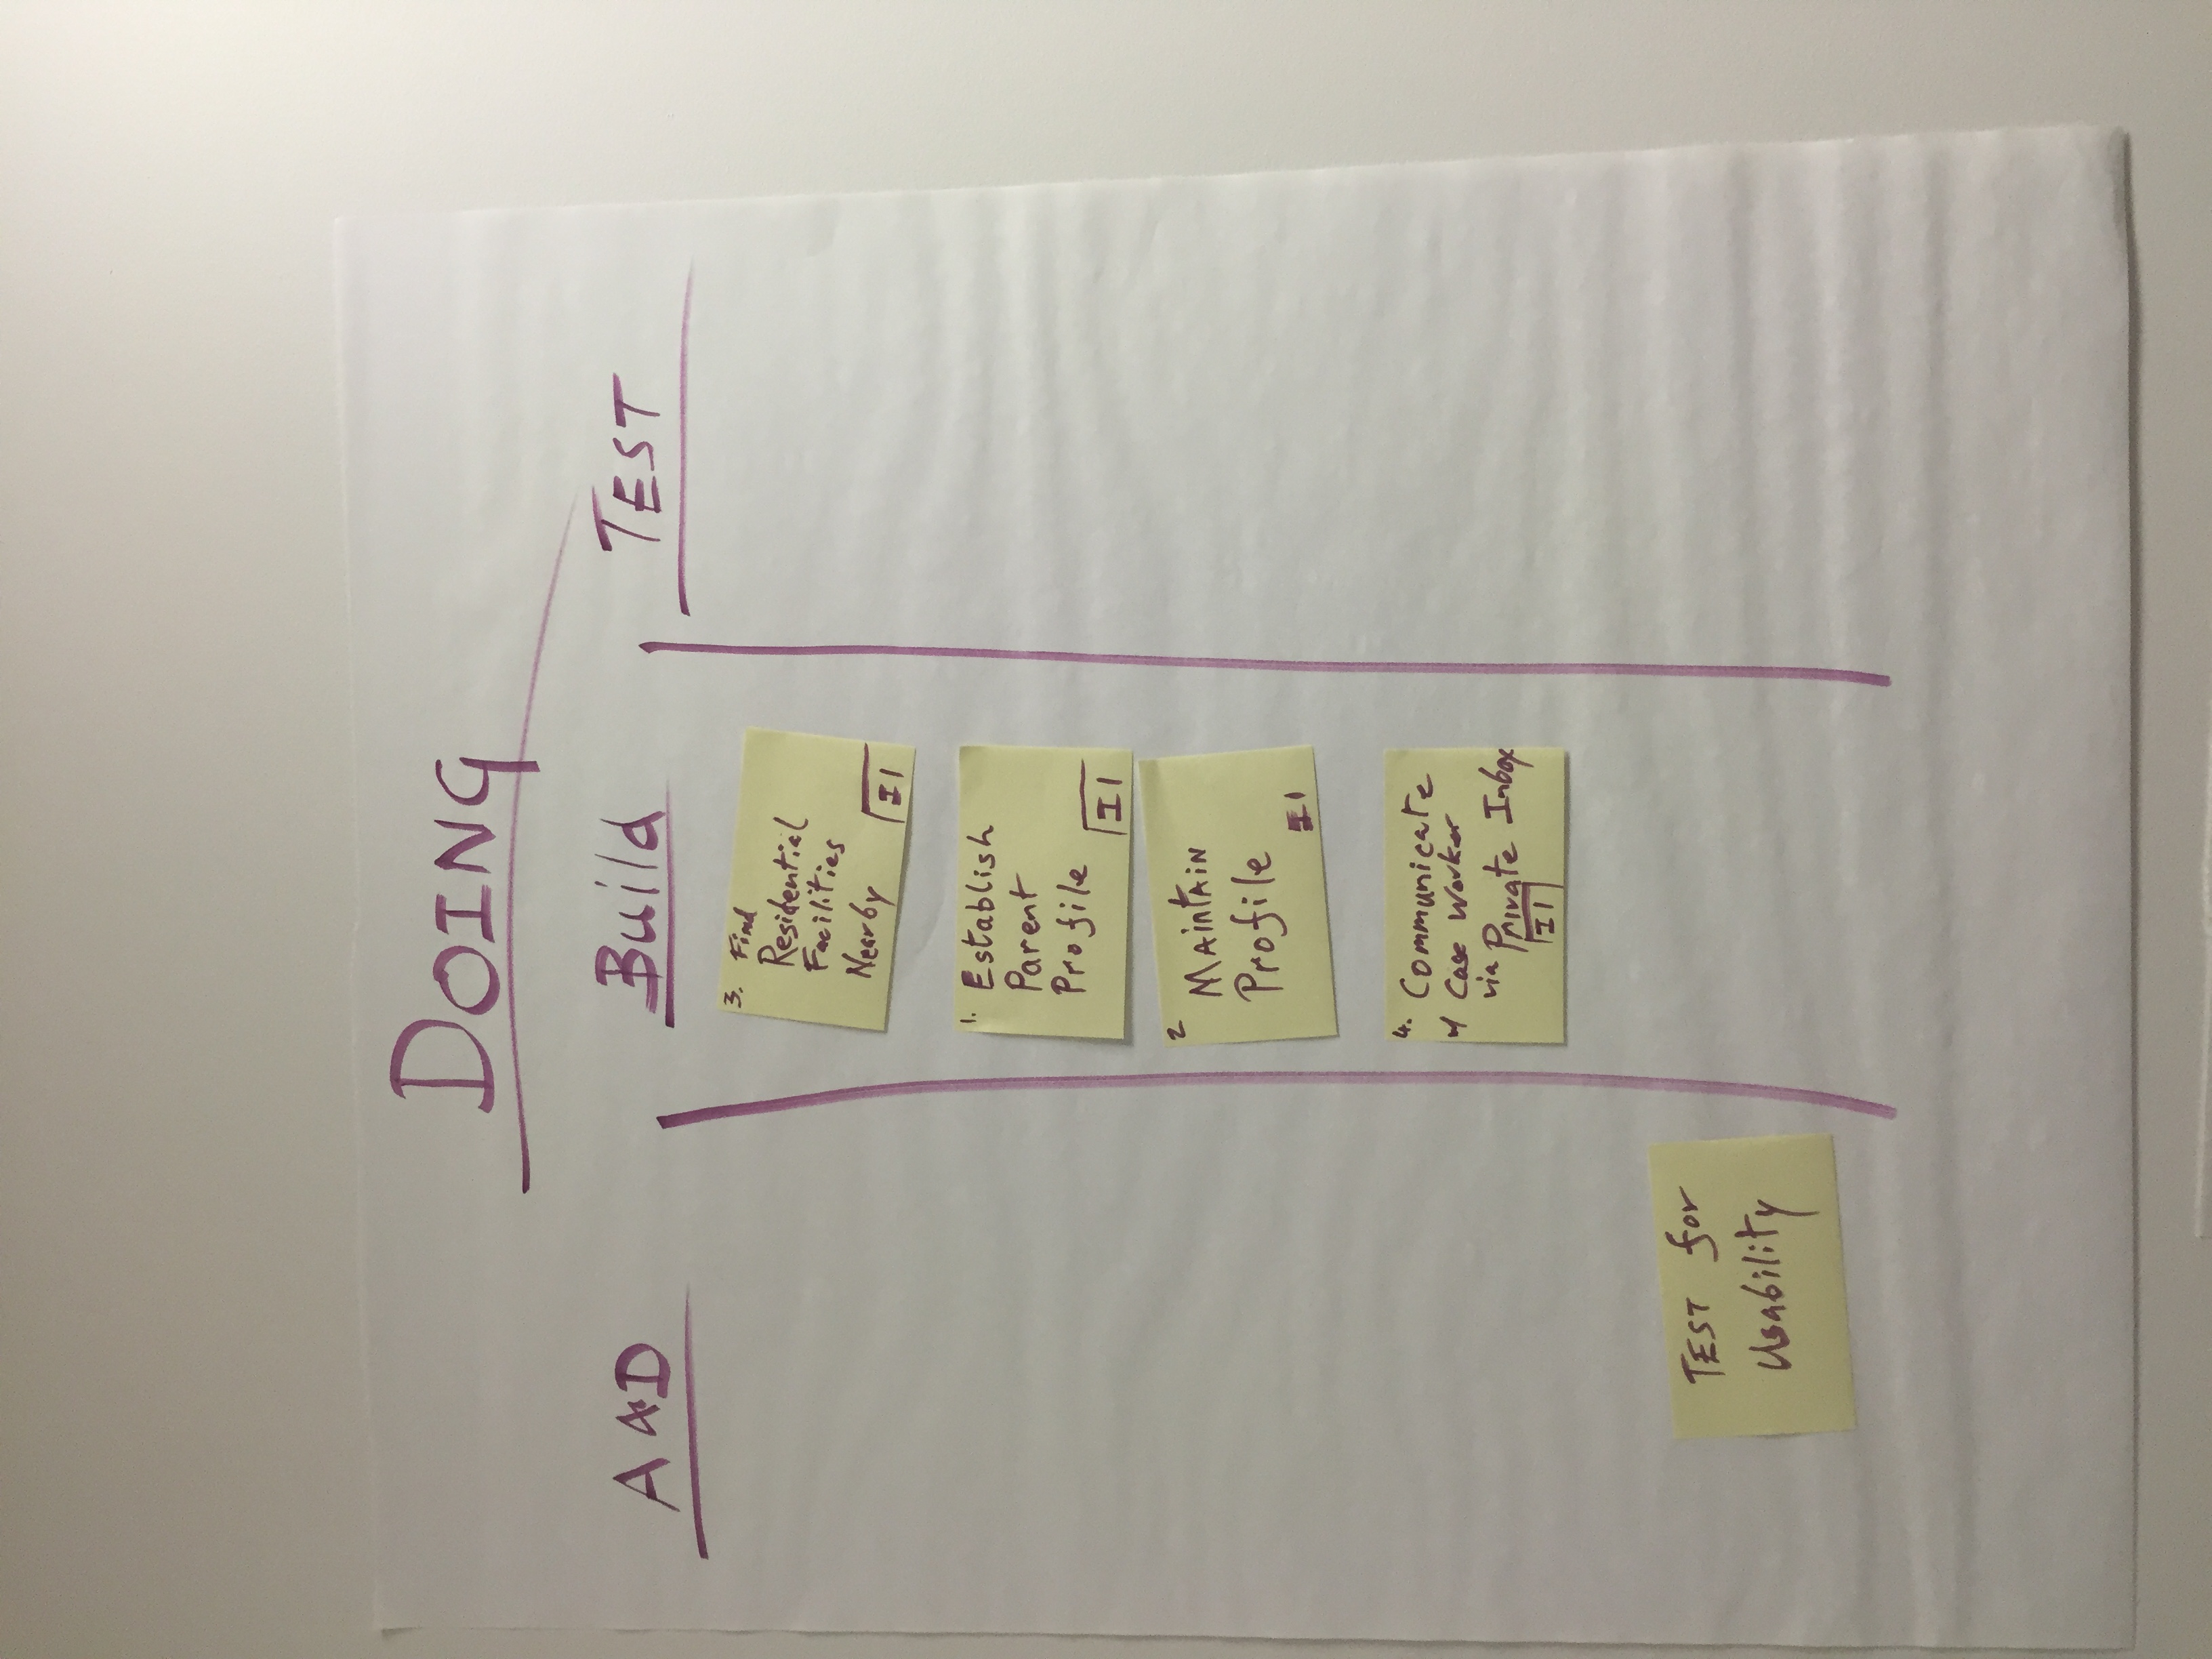 DOING
A & D
Build
TEST
3. Find
Residential
Facilities
Nearby
I1
1. Establish
Parent
Profile
I1
2 MAintAiN
Profile
I1
4. Communicate
w/ Case Worker
via Private Inbox
I1
TEST for
Usability